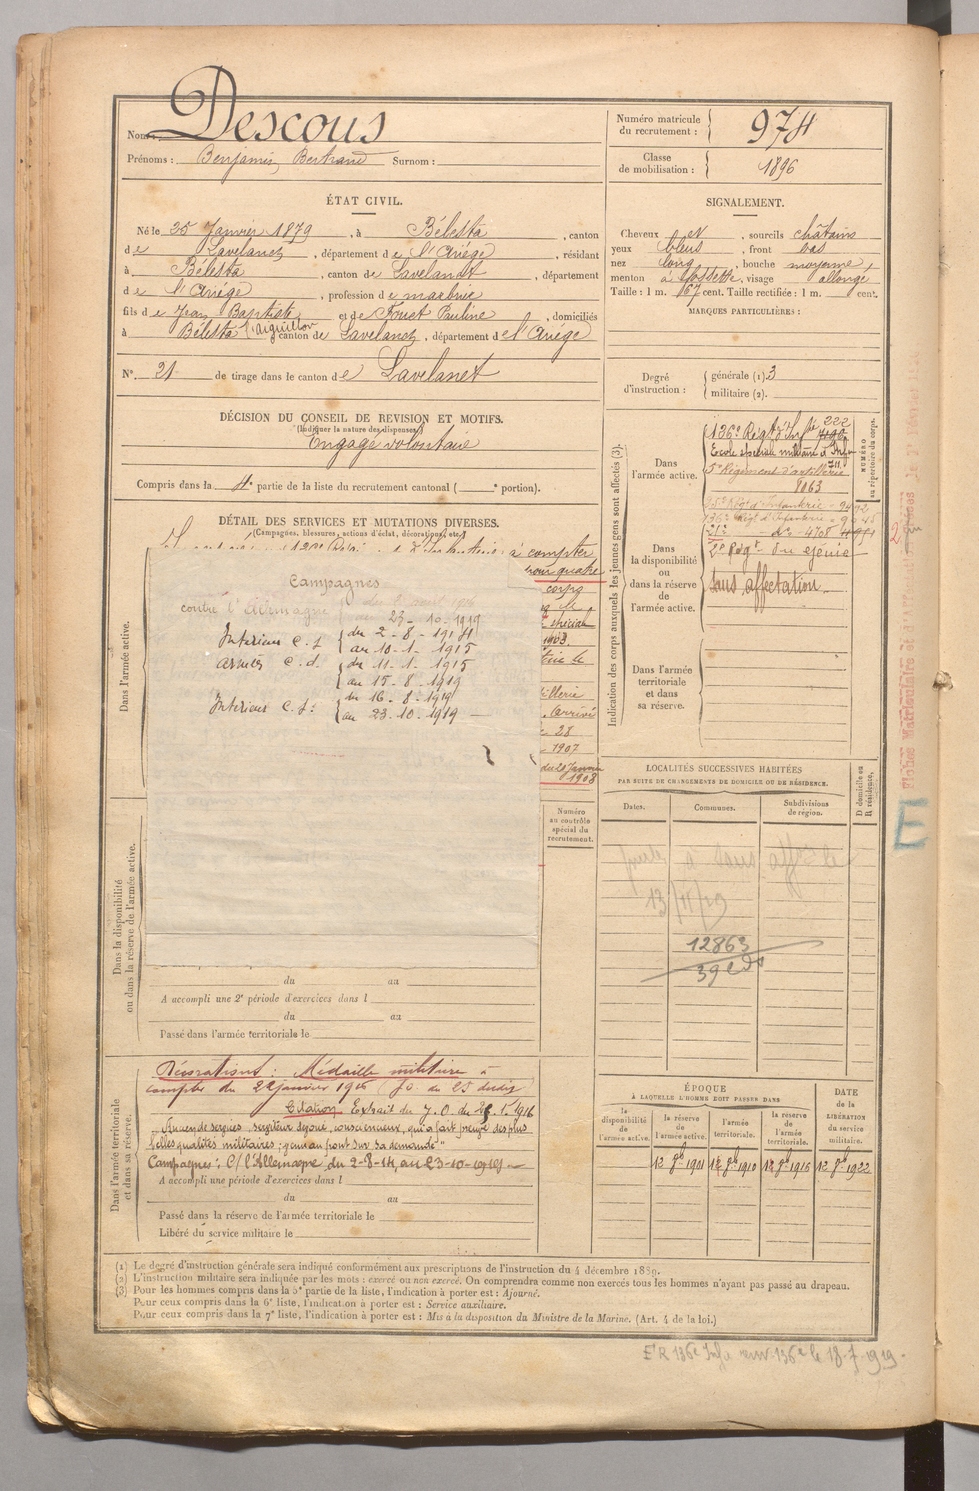 Nom : Descous
Prénoms : Benjamin, Bertrand Surnom :
ÉTAT CIVIL.
Né le 25 Janvier 1879, à Bélesta, canton
de Lavelanet, département de l'Ariège, résidant
à Bélesta, canton de Lavelanet, département
de l'Ariège, profession de
fils de Jean Baptiste et de Fouet Pauline, domiciliés
à Bélesta l'aiguillon canton de Lavelanet, département de l'Ariège
N° 21 de tirage dans le canton de Lavelanet
DÉCISION DU CONSEIL DE REVISION ET MOTIFS.
(Indiquer la nature des dispenses)
Engagé volontaire
Compris dans la 4e partie de la liste du recrutement cantonal ( e portion).
DÉTAIL DES SERVICES ET MUTATIONS DIVERSES.
(Campagnes, blessures, actions d'éclat, décorations, etc.)
à compter
pour quatre
corps
1903
arrivé
28
1907
1908
Dans l'armée active.
Campagnes
contre l'Allemagne
au 23-10-1919
Intérieur C.S. du 2-8-1914
au 10-1-1915
armées C.d. du 11-1-1915
au 15-8-1919
Intérieur C.S: du 16-8-1919
au 23-10-1919
Numéro
au contrôle
spécial du
recrutement.
Dans la disponibilité
ou dans la réserve de l'armée active.
du au
A accompli une 2e période d'exercices dans l
du au
Passé dans l'armée territoriale le
Dans l'armée territoriale
et dans sa réserve.
Décorations : Médaille militaire à
compter du 22 janvier 1916 (J.O. du 25 dudit)
Citation Extrait du J.O. du 25.1.1916
"Ancien de services, serviteur dévoué, consciencieux, qui a fait preuve des plus
belles qualités militaires; venu au front sur sa demande"
Campagnes: C/ l'Allemagne du 2-8-14 au 23-10-1919
A accompli une période d'exercices dans l
du au
Passé dans la réserve de l'armée territoriale le
Libéré du service militaire le
Numéro matricule
du recrutement : 974
Classe
de mobilisation : 1896
SIGNALEMENT.
Cheveux et, sourcils châtains
yeux bleus, front bas
nez long, bouche moyenne,
menton à fossette, visage allongé
Taille : 1 m. 67 cent. Taille rectifiée : 1 m. cent.
MARQUES PARTICULIÈRES :
Degré
d'instruction :
générale (1) 3
militaire (2).
Indication des corps auxquels les jeunes gens sont affectés (3).
NUMÉRO
au répertoire du corps.
Dans
l'armée active.
136e Régt d'Inf 222
Ecole spéciale militaire d'Infie
711
5e Régiment d'artillerie
8063
Dans
la disponibilité
ou
dans la réserve de
l'armée active.
136e Régt d'Infanterie
21e do 4708
2e Régt du génie
Sans affectation
Dans l'armée
territoriale
et dans
sa réserve.
LOCALITÉS SUCCESSIVES HABITÉES
PAR SUITE DE CHANGEMENTS DE DOMICILE OU DE RÉSIDENCE.
Dates.
Communes.
Subdivisions
de région.
D domicile ou
R résidence.
à sans affon le
12863
ÉPOQUE
À LAQUELLE L'HOMME DOIT PASSER DANS
la
disponibilité
de
l'armée active.
la réserve
de
l'armée active.
l'armée
territoriale.
la réserve
de
l'armée
territoriale.
DATE
de la
LIBÉRATION
du service
militaire.
12 8bre 1901
12 8bre 1910
12 8bre 1916
12 8bre 1922
(1) Le degré d'instruction générale sera indiqué conformément aux prescriptions de l'instruction du 4 décembre 1889.
(2) L'instruction militaire sera indiquée par les mots : exercé ou non exercé. On comprendra comme non exercés tous les hommes n'ayant pas passé au drapeau.
(3) Pour les hommes compris dans la 5e partie de la liste, l'indication à porter est : Ajourné.
Pour ceux compris dans la 6e liste, l'indication à porter est : Service auxiliaire.
Pour ceux compris dans la 7e liste, l'indication à porter est : Mis à la disposition du Ministre de la Marine. (Art. 4 de la loi.)
136e le 18-7-1919